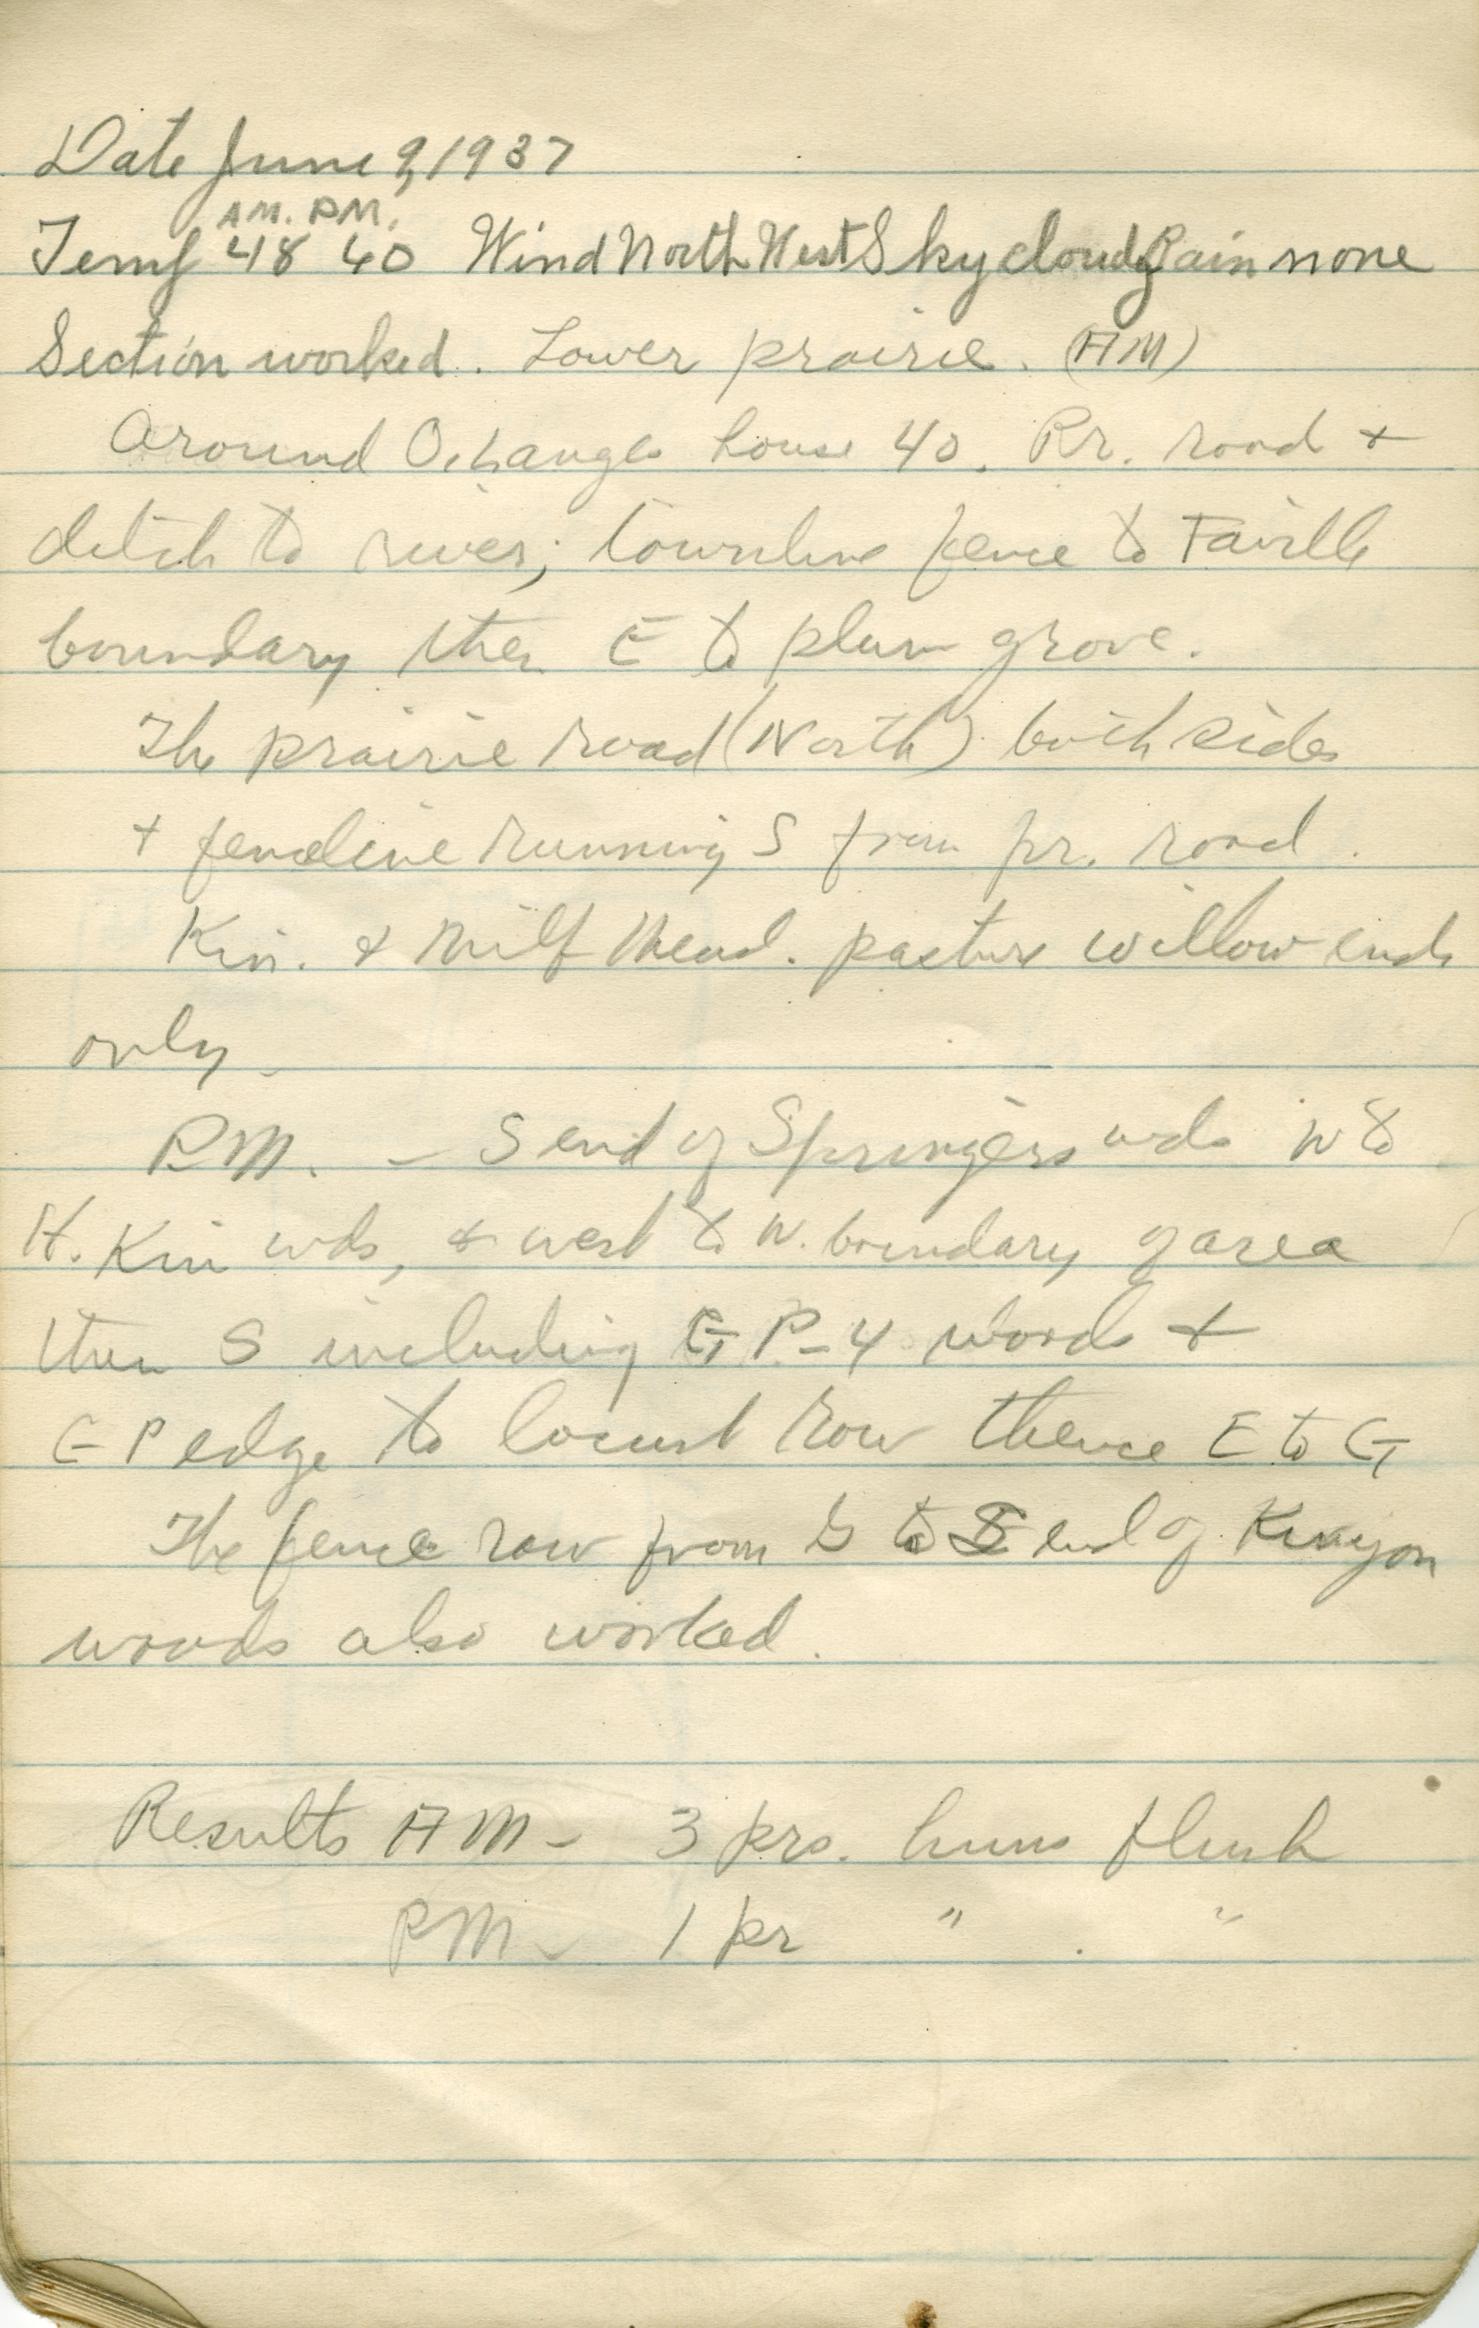 Date June 9, 1937
AM. PM.
Temp 48 60 Wind North West Sky cloudy Rain none
Section worked. Lower prairie. (AM)
Around house 40. Pr. road +
ditch to river; townline fence to Faville
boundary then E to plum grove.
The prairie road (North) both sides
+ fenceline running S from pr. road.
Kin. + Milf Mead. pasture willow ends
only
P.M. - S end of Springers wds N to
H. Kin wds, & west to W. boundary of area
then S including GP-4 woods +
GP edge to locust row thence E to G
The fence row from G to S end of Kinyon
woods also worked.
Results AM - 3 prs. huns flush
PM - 1 pr " "